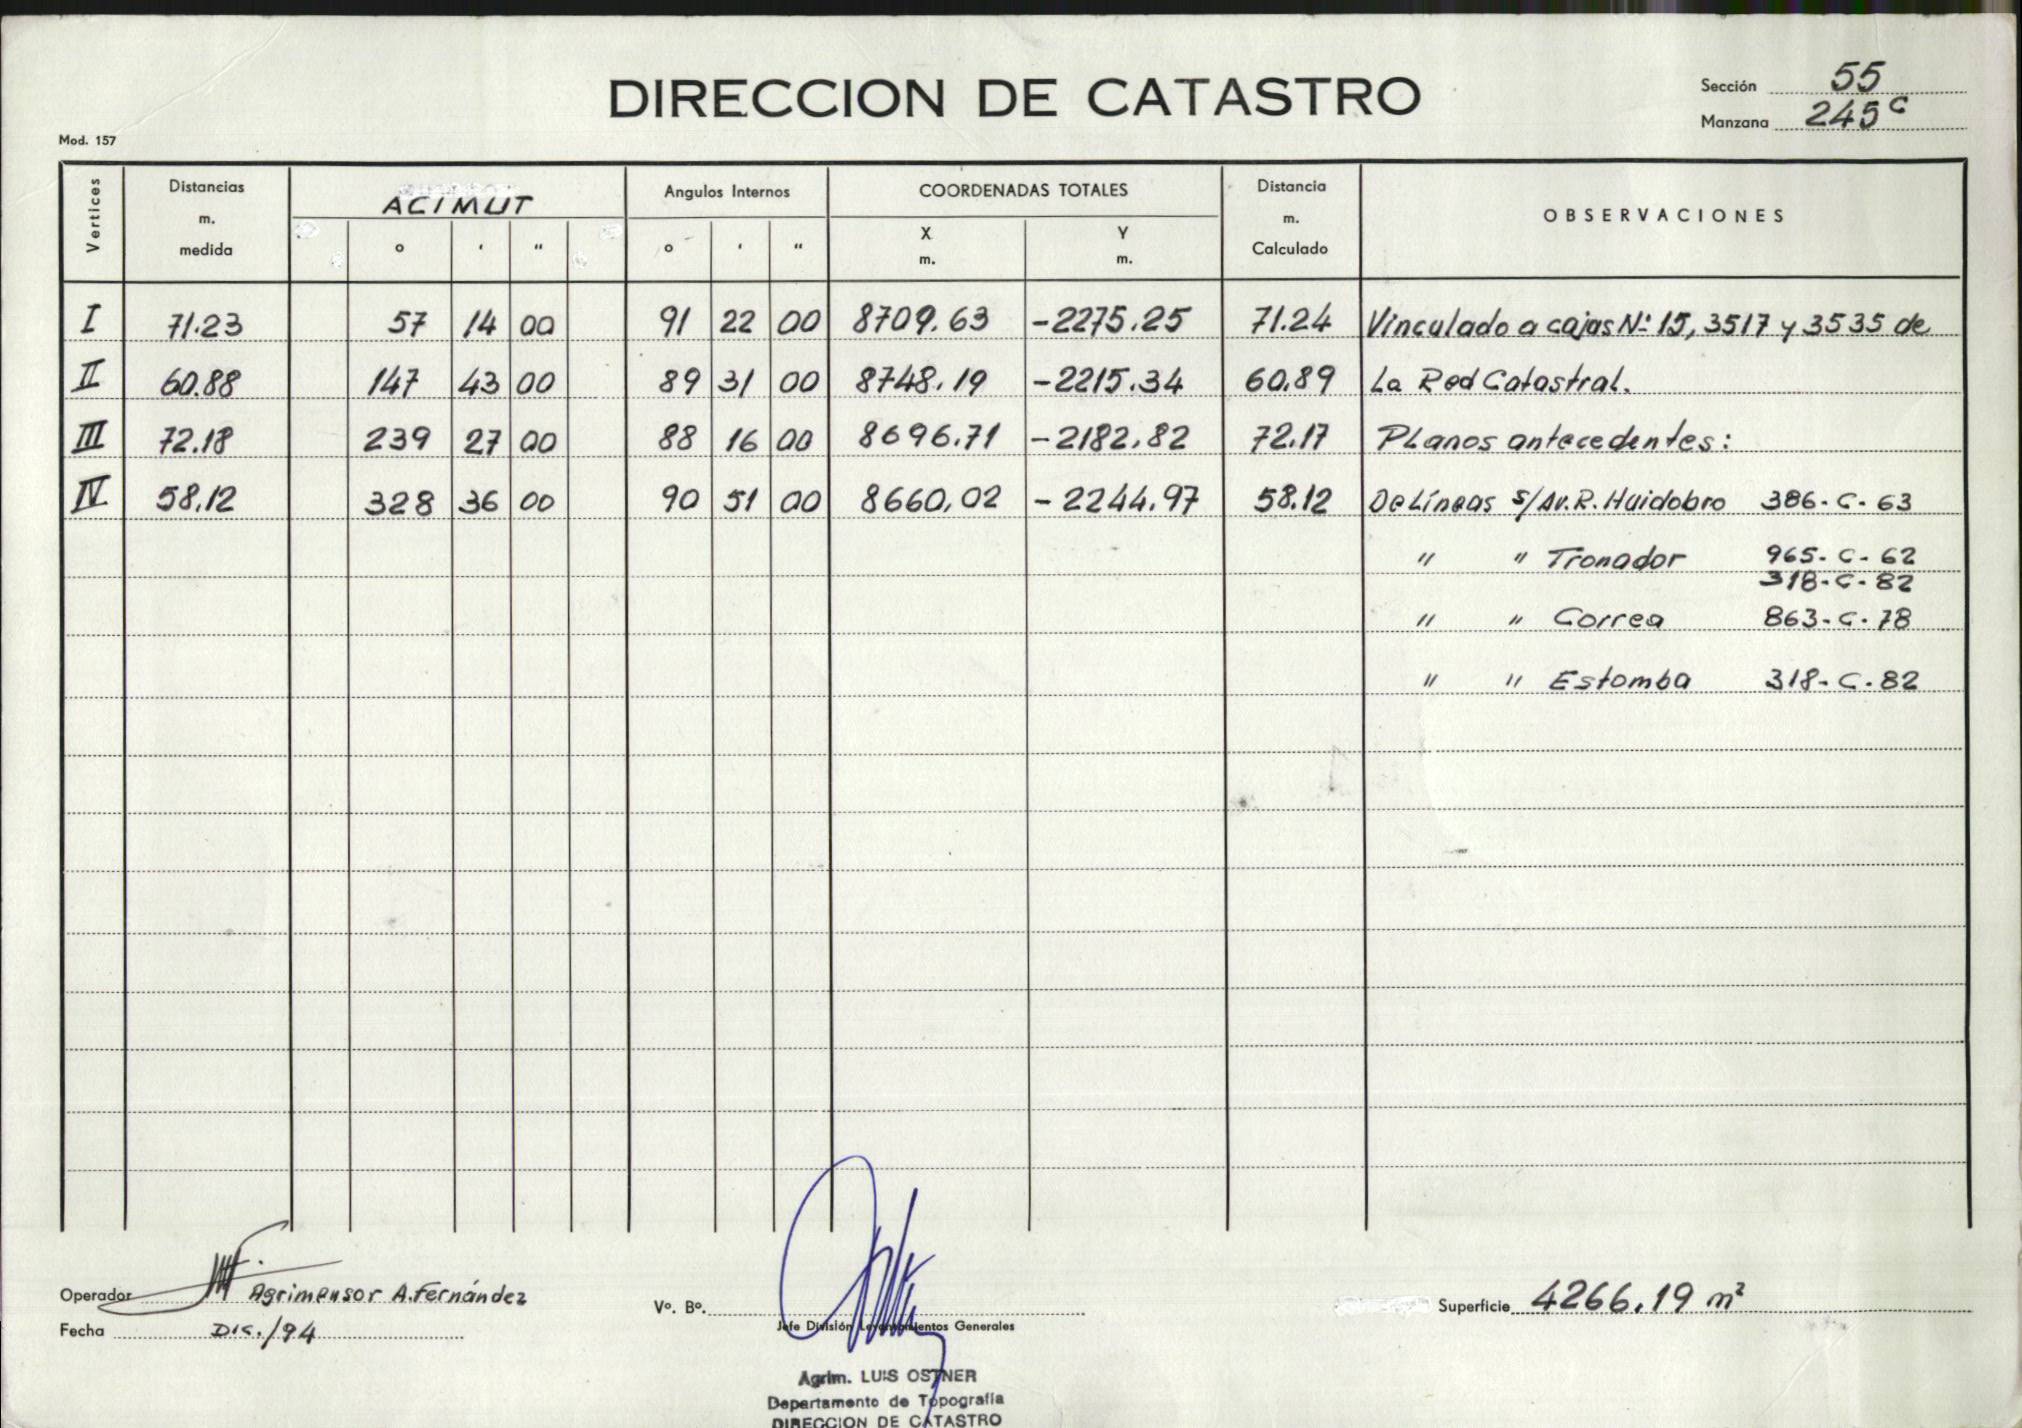 DIRECCION DE CATASTRO
Sección 55
Manzana 245c
Mod. 157
Vertices
Distancias m. medida
ACIMUT
° ' "
Angulos Internos
° ' "
COORDENADAS TOTALES
X m. Y m.
Distancia m. Calculado
OBSERVACIONES
I 71.23 57 14 00 91 22 00 8709.63 -2275.25 71.24 Vinculado a cajas Nº 15, 3517 y 3535 de
II 60.88 147 43 00 89 31 00 8748.19 -2215.34 60.89 La Red Catastral.
III 72.18 239 27 00 88 16 00 8696.71 -2182.82 72.17 Planos antecedentes:
IV 58.12 328 36 00 90 51 00 8660.02 -2244.97 58.12 De Líneas s/Av. R. Huidobro 386-C-63
" " Tronador 965-C-62
318-C-82
" " Correa 863-C-78
" " Estomba 318-C-82
Operador Agrimensor A. Fernández
Fecha Dic./94
Vº. Bº.
Jefe División Levantamientos Generales
Agrim. LUIS OSTNER
Departamento de Topografía
DIRECCION DE CATASTRO
Superficie 4266.19 m²